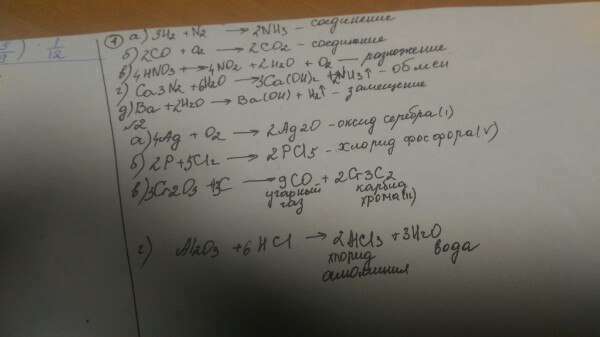 5/9) 1/12
① а) 3H2 + N2 → 2NH3 - соединение
б) 2CO + O2 → 2CO2 - соединение
в) 4HNO3 → 4NO2 + 2H2O + O2 - разложение
г) Ca3N2 + 6H2O → 3Ca(OH)2 + 2NH3↑ - обмен
д) Ba + 2H2O → Ba(OH) + H2↑ - замещение
№2
а) 4Ag + O2 → 2Ag2O - оксид серебра (I)
б) 2P + 5Cl2 → 2PCl5 - хлорид фосфора (V)
в) 3Cr2O3 + 13C → 9CO + 2Cr3C2
угарный газ карбид хрома (II)
г) Al2O3 + 6HCl → 2AlCl3 + 3H2O
хлорид алюминия вода